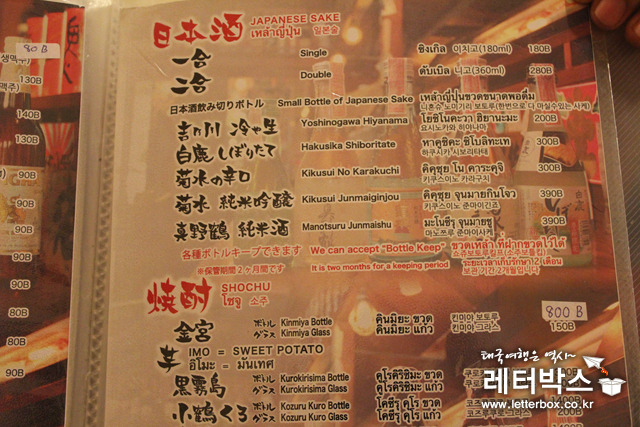 日本酒 JAPANESE SAKE
เหล้าญี่ปุ่น 일본술
一合 Single ซิงเกิล 이치고(180ml) 180B
二合 Double ดับเบิล 니고(360ml) 280B
日本酒飲み切りボトル Small Bottle of Japanese Sake เหล้าญี่ปุ่นขวดขนาดพอดื่ม
吉乃川 冷や生 Yoshinogawa Hiyanama โยชิโนคะวา ฮิยานามะ 200B
요시노카와 히야나마
白鹿 しぼりたて Hakusika Shiboritate ฮาคุชิคะ ชิโบลิทะเท 300B
하쿠시카 시보리타테
菊水の辛口 Kikusui No Karakuchi คิคุซุย โน คาระคุจิ 350B
키쿠스이노 카라구치
菊水 純米吟醸 Kikusui Junmaiginjou คิคุซุย จุนมายกินโจว 390B
키쿠스이노 준마이긴죠
真野鶴 純米酒 Manotsuru Junmaishu มะโนซึรุ จุนมายชุ 390B
마노쯔루 준마이사케
各種ボトルキープできます We can accept "Bottle Keep" ขวดเหล้า ที่ฝากขวดไว้ได้
※保管期間2ヶ月間です It is two months for a keeping period
보관 기간 2개월입니다
焼酎 SHOCHU
โชจู 소주
800B
金宮 ボトル Kinmiya Bottle คินมิยะ ขวด 킨미야 보토루
グラス Kinmiya Glass คินมิยะ แก้ว 킨미야 그라스 150B
芋 IMO = SWEET POTATO
อิโมะ = มันเทศ
黒霧島 ボトル Kurokirisima Bottle คุโรคิริซิมะ ขวด
グラス Kurokirisima Glass คุโรคิริซิมะ แก้ว
小鶴くろ ボトル Kozuru Kuro Bottle โคซึรุ คุโร ขวด
グラス Kozuru Kuro Glass โคซึรุ คุโร แก้ว
80B
생맥주)
130B
140B
130B
90B
90B
90B
90B
90B
80B
90B
태국여행은 역사~
레터박스
www.letterbox.co.kr